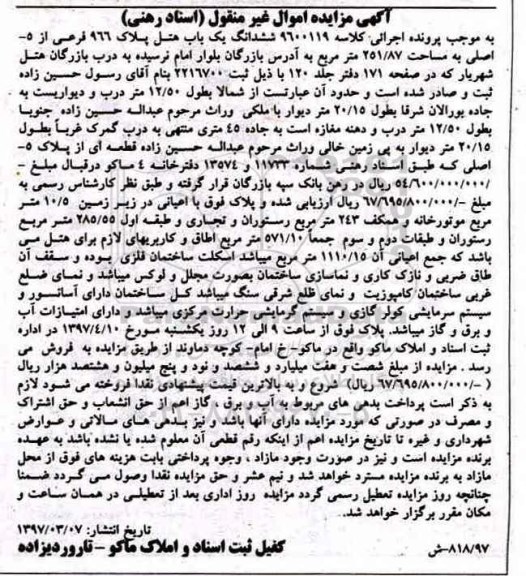 آگهی مزایده اموال غیر منقول (اسناد رهنی)
به موجب پرونده اجرائی کلاسه ۹۶۰۰۱۱۹ ششدانگ یک باب هتل پلاک ۹۶۶ فرعی از ۵-
اصلی به مساحت ۲۵۱/۸۷ متر مربع به آدرس بازرگان بلوار امام نرسیده به درب بازرگان هتل
شهریار که در صفحه ۱۷۱ دفتر جلد ۱۲۰ با ذیل ثبت ۲۲۱۶۷۰۰ بنام آقای رسول حسین زاده
ثبت و صادر شده است و حدود آن عبارتست از شمالا بطول ۱۲/۵۰ متر درب و دیواریست به
جاده بورالان شرقا بطول ۲۰/۱۵ متر دیوار با ملکی وراث مرحوم عبداله حسین زاده جنوبا
بطول ۱۲/۵۰ متر درب و دهنه مغازه است به جاده ۴۵ متری منتهی به درب گمرک غرباً بطول
۲۰/۱۵ متر دیوار به پی زمین خالی وراث مرحوم عبداله حسین زاده قطعه ای از پلاک ۵-
اصلی که طبق اسناد رهنی شماره ۱۱۷۳۳ و ۱۳۵۷۴ دفترخانه ۴ ماکو درقبال مبلغ -
/۵۴/۶۰۰/۰۰۰/۰۰۰ ریال در رهن بانک سپه بازرگان قرار گرفته و طبق نظر کارشناس رسمی به
مبلغ -/۶۷/۶۹۵/۸۰۰/۰۰۰ ریال ارزیابی شده و پلاک فوق با اعیانی در زیر زمین ۱۰/۵ متر
مربع موتورخانه و همکف ۲۴۳ متر مربع رستوران و تجاری و طبقه اول ۲۸۵/۵۵ متر مربع
رستوران و طبقات دوم و سوم جمعاً ۵۷۱/۱۰ متر مربع اطاق و کاربریهای لازم برای هتل می
باشد که جمع اعیانی آن ۱۱۱۰/۱۵ متر مربع میباشد اسکلت ساختمان فلزی بوده و سقف آن
طاق ضربی و نازک کاری و نماسازی ساختمان بصورت مجلل و لوکس میباشد و نمای ضلع
غربی ساختمان کامپوزیت و نمای ظلع شرقی سنگ میباشد کل ساختمان دارای آسانسور و
سیستم سرمایشی کولر گازی و سیستم گرمایشی حرارت مرکزی میباشد و دارای امتیازات آب
و برق و گاز میباشد. پلاک فوق از ساعت ۹ الی ۱۲ روز یکشنبه مورخ ۱۳۹۷/۴/۱۰ در اداره
ثبت اسناد و املاک ماکو واقع در ماکو- خ امام- کوچه دماوند از طریق مزایده به فروش می
رسد . مزایده از مبلغ شصت و هفت میلیارد و ششصد و نود و پنج میلیون و هشتصد هزار ریال
( -/۶۷/۶۹۵/۸۰۰/۰۰۰ ریال) شروع و به بالاترین قیمت پیشنهادی نقدا فروخته می شود لازم
به ذکر است پرداخت بدهی های مربوط به آب و برق ، گاز اعم از حق انشعاب و حق اشتراک
و مصرف در صورتی که مورد مزایده دارای آنها باشد و نیز بدهی های مالیاتی و عوارض
شهرداری و غیره تا تاریخ مزایده اعم از اینکه رقم قطعی آن معلوم شده یا نشده باشد به عهده
برنده مزایده است و نیز در صورت وجود مازاد ، وجوه پرداختی بابت هزینه های فوق از محل
مازاد به برنده مزایده مسترد خواهد شد و نیم عشر و حق مزایده نقدا وصول می گردد ضمنا
چنانچه روز مزایده تعطیل رسمی گردد مزایده روز اداری بعد از تعطیلی در همان ساعت و
مکان مقرر برگزار خواهد شد.
تاریخ انتشار: ۱۳۹۷/۰۳/۰۷
۸۱۸/۹۷-ش کفیل ثبت اسناد و املاک ماکو - تاروردیزاده